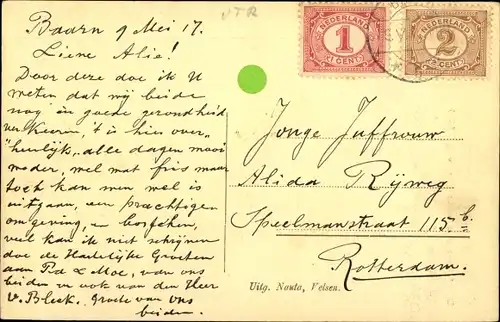 Baarn 9 Mei 17.
VTR
Lieve Alie!
Door deze doe ik U
weten dat wij beide
nog in goede gezondheid
verkeeren, 't is hier over-
heerlijk, alle dagen mooi
weder, wel wat fris maar
toch kan men wel is
uitgaan, een prachtigen
omgeving, en bosschen,
veel kan ik niet schrijven
doe de Hartelijke Groeten
aan Pa & Moe, van ons
beiden en ook van den Heer
v. Bleek. Groete van ons
beiden.
NEDERLAND
1
CENT
NEDERLAND
2
CENT
Jonge Juffrouw
Alida Rijweg
Speelmanstraat 115 b.
Rotterdam.
Uitg. Nauta, Velsen.